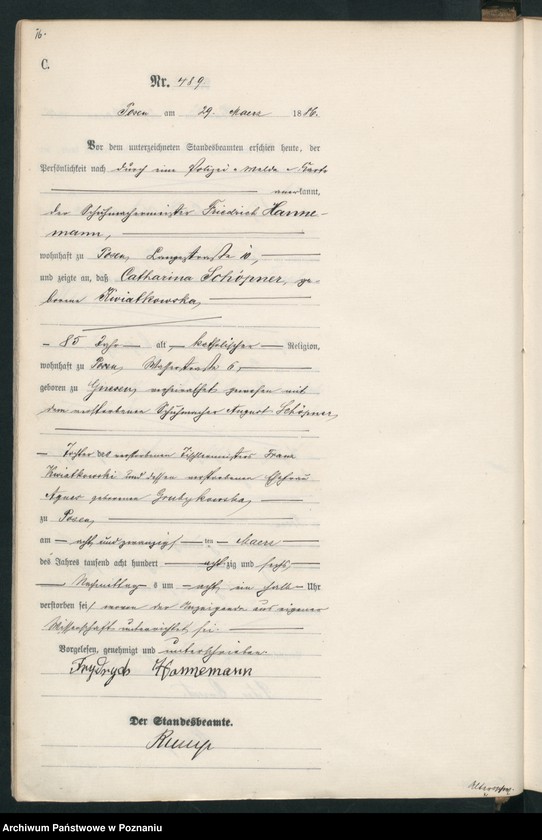 76.
C.
Nr. 489.
Posen am 29. Maerz 1886.
Vor dem unterzeichneten Standesbeamten erschien heute, der
Persönlichkeit nach durch eine Polizei-Melde-Karte
anerkannt,
der Schuhmachermeister Friedrich Hanne-
mann,
wohnhaft zu Posen, Langestraße 10,
und zeigte an, daß Catharina Schöpner, ge-
borene Kwiatkowska,
85 Jahr alt, katholischer Religion,
wohnhaft zu Posen, 6,
geboren zu Gnesen, verheirathet gewesen mit
dem verstorbenen Schuhmacher August Schöpner,
Tochter des verstorbenen Tischlermeisters Franz
Kwiatkowski und dessen verstorbenen Ehefrau
Agnes geborenen
zu Posen,
am acht und zwanzigsten Maerz
des Jahres tausend acht hundert achtzig und sechs
Nachmittags um acht ein halb Uhr
verstorben sei, wovon der Anzeigende aus eigener
Wissenschaft unterrichtet sei.
Vorgelesen, genehmigt und unterschrieben
Frydrych Hannemann
Der Standesbeamte.
Rump
Archiwum Państwowe w Poznaniu